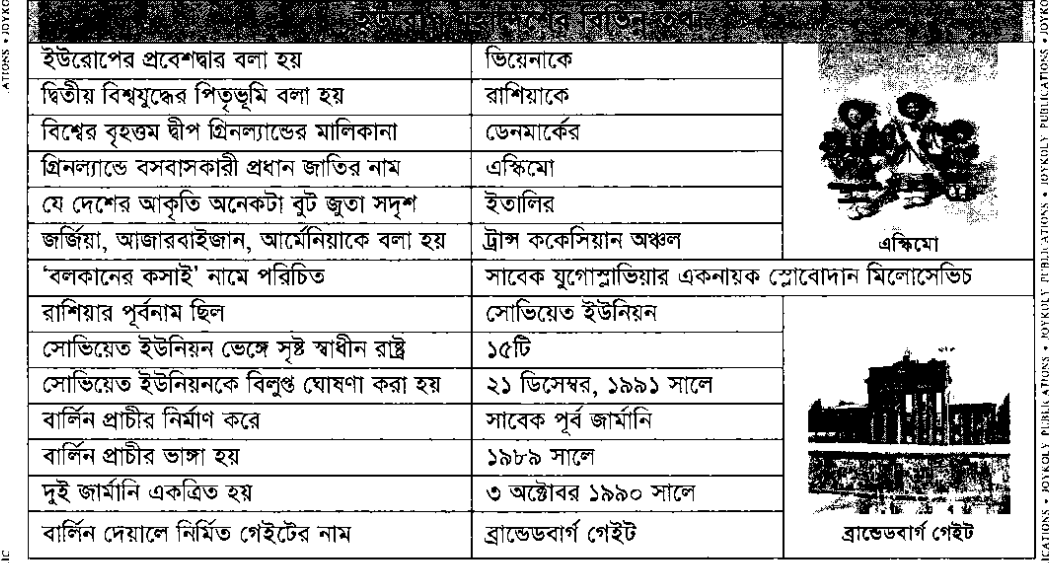 ইউরোপ মহাদেশের বিভিন্ন তথ্য
ইউরোপের প্রবেশদ্বার বলা হয় ভিয়েনাকে
দ্বিতীয় বিশ্বযুদ্ধের পিতৃভূমি বলা হয় রাশিয়াকে
বিশ্বের বৃহত্তম দ্বীপ গ্রিনল্যান্ডের মালিকানা ডেনমার্কের
গ্রিনল্যান্ডে বসবাসকারী প্রধান জাতির নাম এস্কিমো
যে দেশের আকৃতি অনেকটা বুট জুতা সদৃশ ইতালির
জর্জিয়া, আজারবাইজান, আর্মেনিয়াকে বলা হয় ট্রান্স ককেসিয়ান অঞ্চল
এস্কিমো
‘বলকানের কসাই’ নামে পরিচিত সাবেক যুগোস্লাভিয়ার একনায়ক স্লোবোদান মিলোসেভিচ
রাশিয়ার পূর্বনাম ছিল সোভিয়েত ইউনিয়ন
সোভিয়েত ইউনিয়ন ভেঙ্গে সৃষ্ট স্বাধীন রাষ্ট্র ১৫টি
সোভিয়েত ইউনিয়নকে বিলুপ্ত ঘোষণা করা হয় ২১ ডিসেম্বর, ১৯৯১ সালে
বার্লিন প্রাচীর নির্মাণ করে সাবেক পূর্ব জার্মানি
বার্লিন প্রাচীর ভাঙ্গা হয় ১৯৮৯ সালে
দুই জার্মানি একত্রিত হয় ৩ অক্টোবর ১৯৯০ সালে
বার্লিন দেয়ালে নির্মিত গেইটের নাম ব্রান্ডেডবার্গ গেইট
ব্রান্ডেডবার্গ গেইট
JOYKOLY PUBLICATIONS • JOYKOLY PUBLICATIONS • JOYKOLY PUBLICATIONS